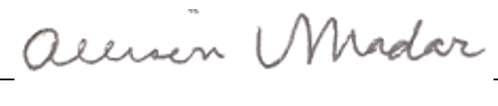 Allison Madar